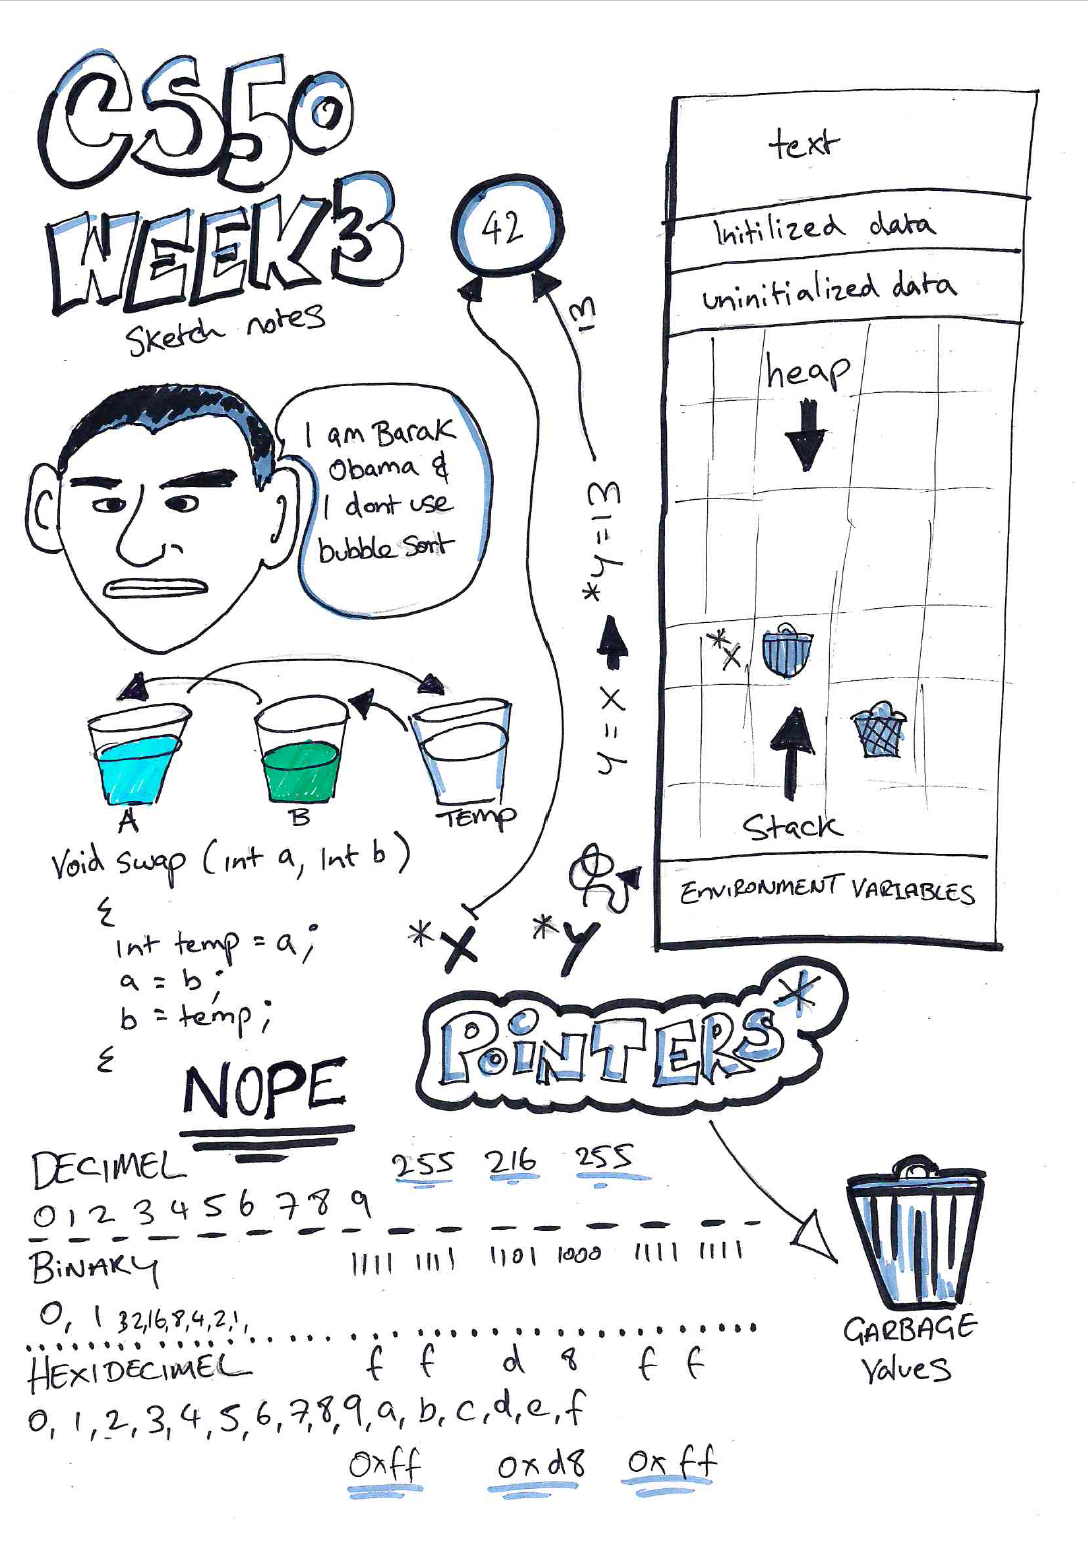 CS50
WEEK3
Sketch notes
I am Barak
Obama &
I dont use
bubble Sort
A
B
TEMP
Void swap (int a, int b)
{
int temp = a;
a = b;
b = temp;
{
NOPE
42
13
*y=13
y=x
*X
*Y
text
Initilized data
uninitialized data
heap
*x
Stack
ENVIRONMENT VARIABLES
POINTERS*
GARBAGE
Values
DECIMEL
255 216 255
0 1 2 3 4 5 6 7 8 9
BINARY
1111 1111 1101 1000 1111 1111
0, 1 32,16,8,4,2,1,
HEXIDECIMEL
f f d 8 f f
0, 1, 2, 3, 4, 5, 6, 7, 8, 9, a, b, c, d, e, f
0xff 0xd8 0xff